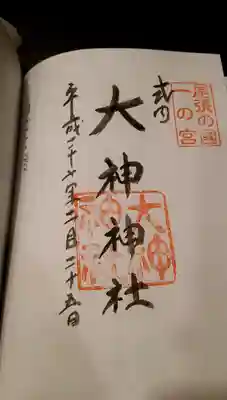 尾張の国
一の宮
式内
大神神社
大神
神社
平成二十七年二月二十五日